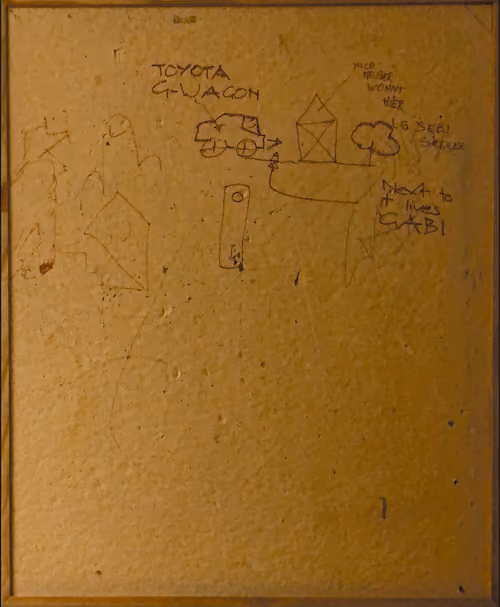 TOYOTA
G-WAGON
NICO
NEGER
WOHNT
HIER
LG SEBI
Next to
it lives
GABI